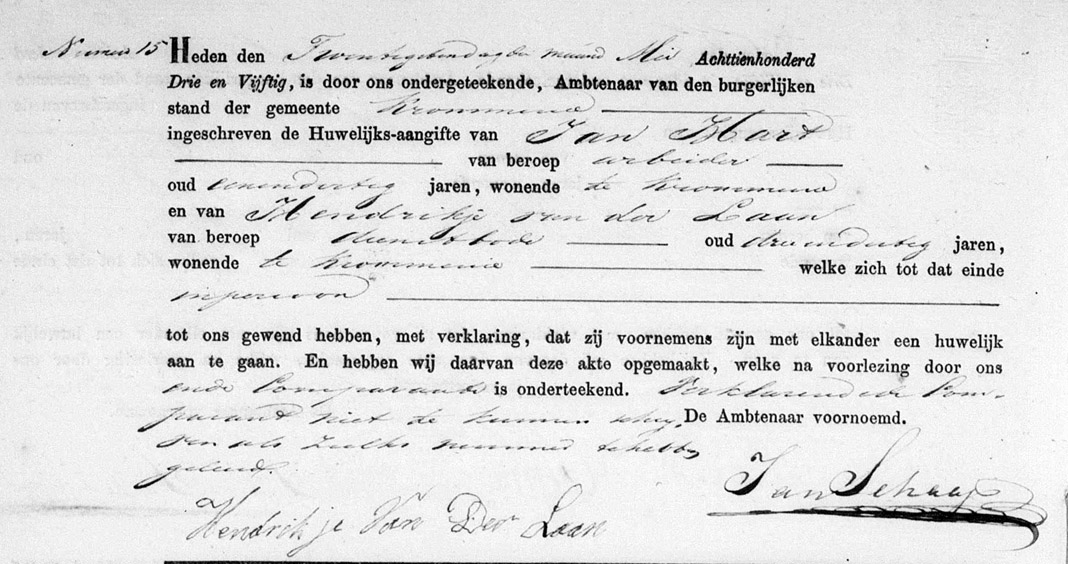 Numero 15 Heden den Twintigsten dag der maand Mei Achttienhonderd
Drie en Vijftig, is door ons ondergeteekende, Ambtenaar van den burgerlijken
stand der gemeente Krommenie
ingeschreven de Huwelijks-aangifte van Jan Mart
van beroep arbeider
oud eenendertig jaren, wonende te Krommenie
en van Hendrikje van der Laan
van beroep dienstbode oud drieendertig jaren,
wonende te Krommenie welke zich tot dat einde
in persoon
tot ons gewend hebben, met verklaring, dat zij voornemens zijn met elkander een huwelijk
aan te gaan. En hebben wij daarvan deze akte opgemaakt, welke na voorlezing door ons
ende Comparante is onderteekend. Verklarende de Com-
parant niet te kunnen schrij De Ambtenaar voornoemd.
ven als zulks nimmer te hebben
geleerd.
Jan Schaap
Hendrikje Van Der Laan